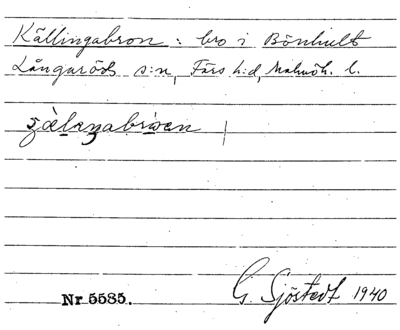 Källingabron : bro i Bönhult
Långaröds s:n, Färs h:d, Malmöh. l.
Nr 5585.
G. Sjöstedt 1940